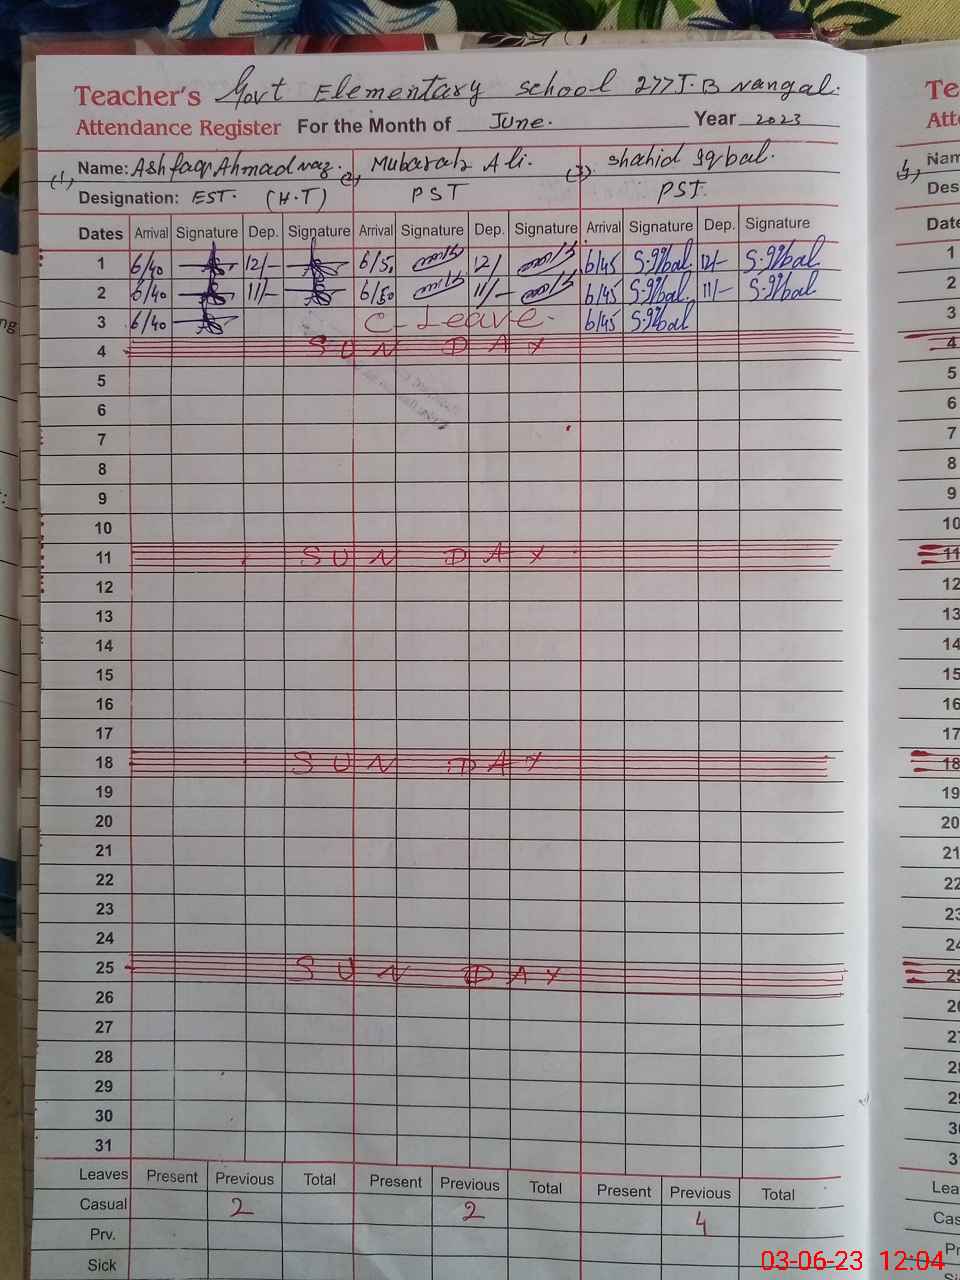 Teacher's Govt Elementary school 277J.B Nangal.
Attendance Register For the Month of June. Year 2023
(1) Name: Ashfaq Ahmad (2) Mubarak Ali. (3) Shahid Iqbal.
Designation: EST. (H.T) PST PST.
Dates Arrival Signature Dep. Signature Arrival Signature Dep. Signature Arrival Signature Dep. Signature
1 6/40 12/- 6/5 12/ 6/45 S.Iqbal 12/- S.Iqbal
2 6/40 11/- 6/50 11/- 6/45 S.Iqbal 11/- S.Iqbal
3 6/40 C-Leave. 6/45 S.Iqbal
4 SUN DAY
5
6
7
8
9
10
11 SUN DAY
12
13
14
15
16
17
18 SUN DAY
19
20
21
22
23
24
25 SUN DAY
26
27
28
29
30
31
Leaves Present Previous Total Present Previous Total Present Previous Total
Casual 2 2 4
Prv.
Sick
Te
Att
4, Nam
Des
Date
1
2
3
4
5
6
7
8
9
10
11
12
13
14
15
16
17
18
19
20
21
22
23
24
25
26
27
28
29
30
3
Lea
Cas
Pr
03-06-23 12:04